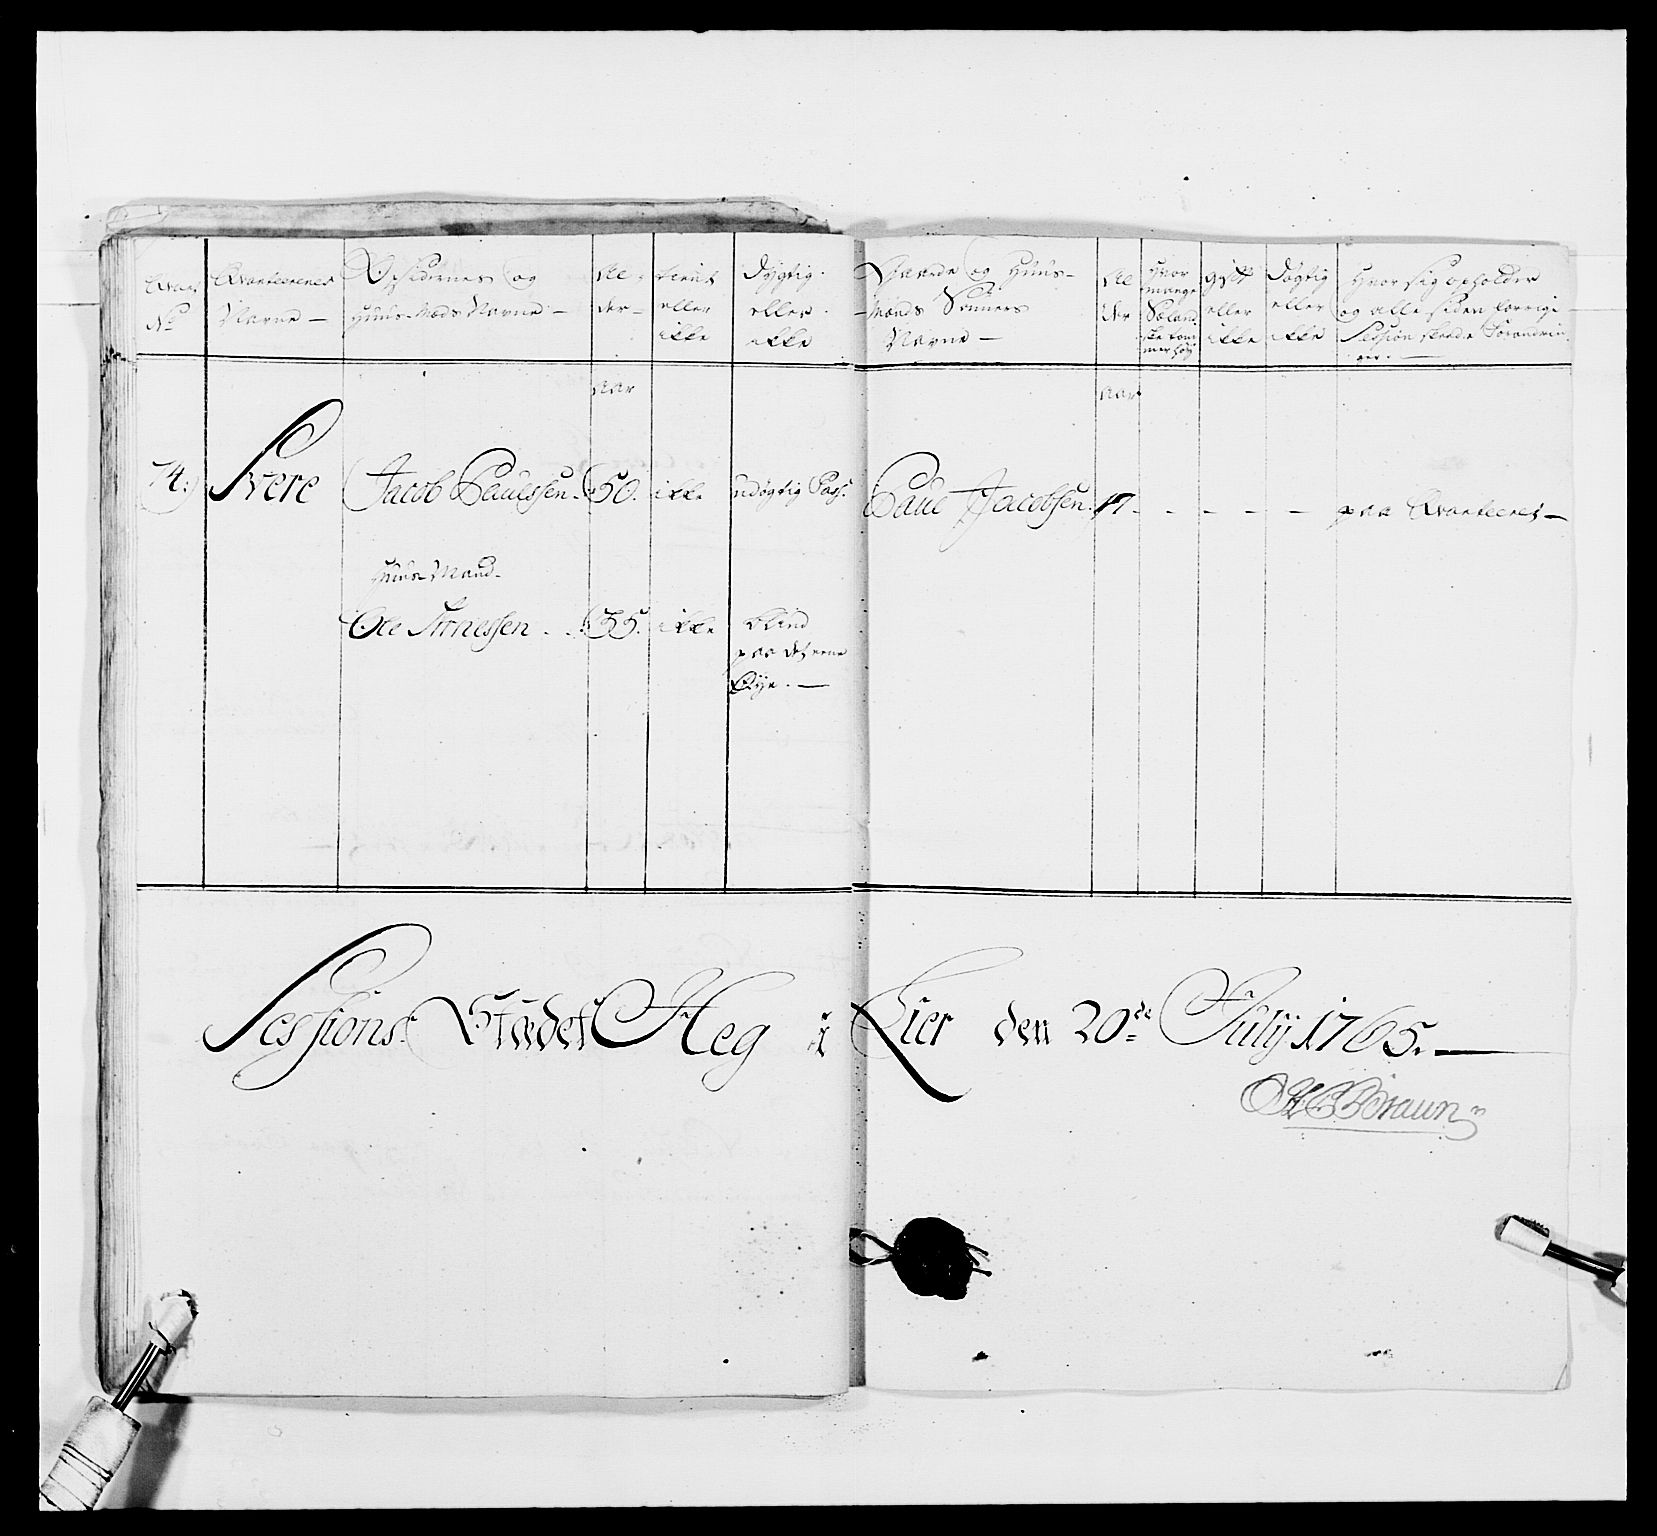 No
Qvarteerenes
Navne —
Opsidernes og
Huus-Mænds Navne —
Al-
der-
tient
eller
ikke
Dygtig
eller
ikke
Gaarde og Huus-
Mænds Sønners
Navne —
Al
der
Hvor
mange
gift
eller
ikke
Dygtig
eller
ikke
Hvor sig opholder
og alle siden forrige
Session skeede Forandrin
ger. —
Aar
Aar
74.
Svere
Jacob Paulssen.
50.
ikke
udygtig Pass.
Paul Jacobsen.
17
paa Qvarteeret —
Huus-Mand.
Ole
35.
ikke
blind
paa det eene
Øye. —
Sessions Stædet Heg i Lier den 20de Julij 1765. —
Braun